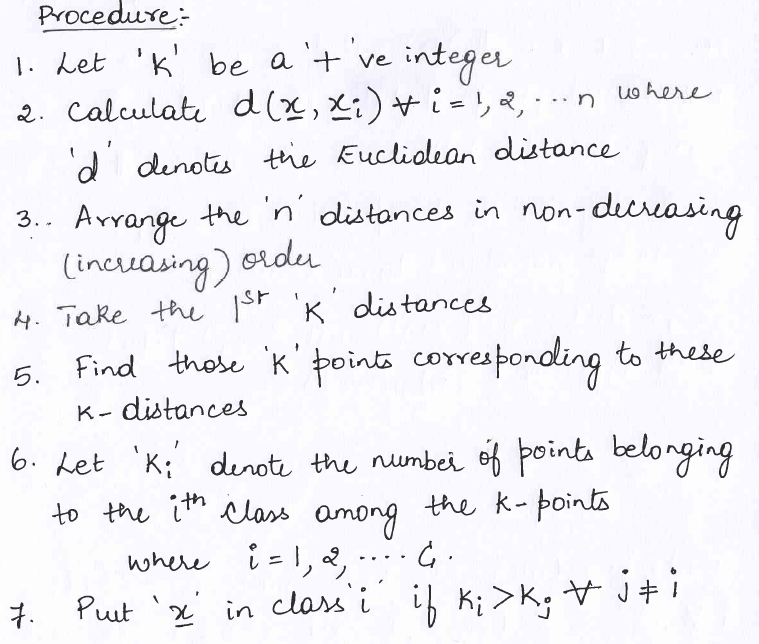 Procedure:-
1. Let 'K' be a '+'ve integer
2. Calculate d(x̲, x̲ᵢ) ∀ i = 1, 2, ... n where
'd' denotes the Euclidean distance
3.. Arrange the 'n' distances in non-decreasing
(increasing) order
4. Take the 1st 'K' distances
5. Find those 'K' points corresponding to these
K-distances
6. Let 'Kᵢ' denote the number of points belonging
to the ith class among the K-points
where i = 1, 2, .... G.
7. Put 'x̲' in class 'i' if Kᵢ > Kⱼ ∀ j ≠ i